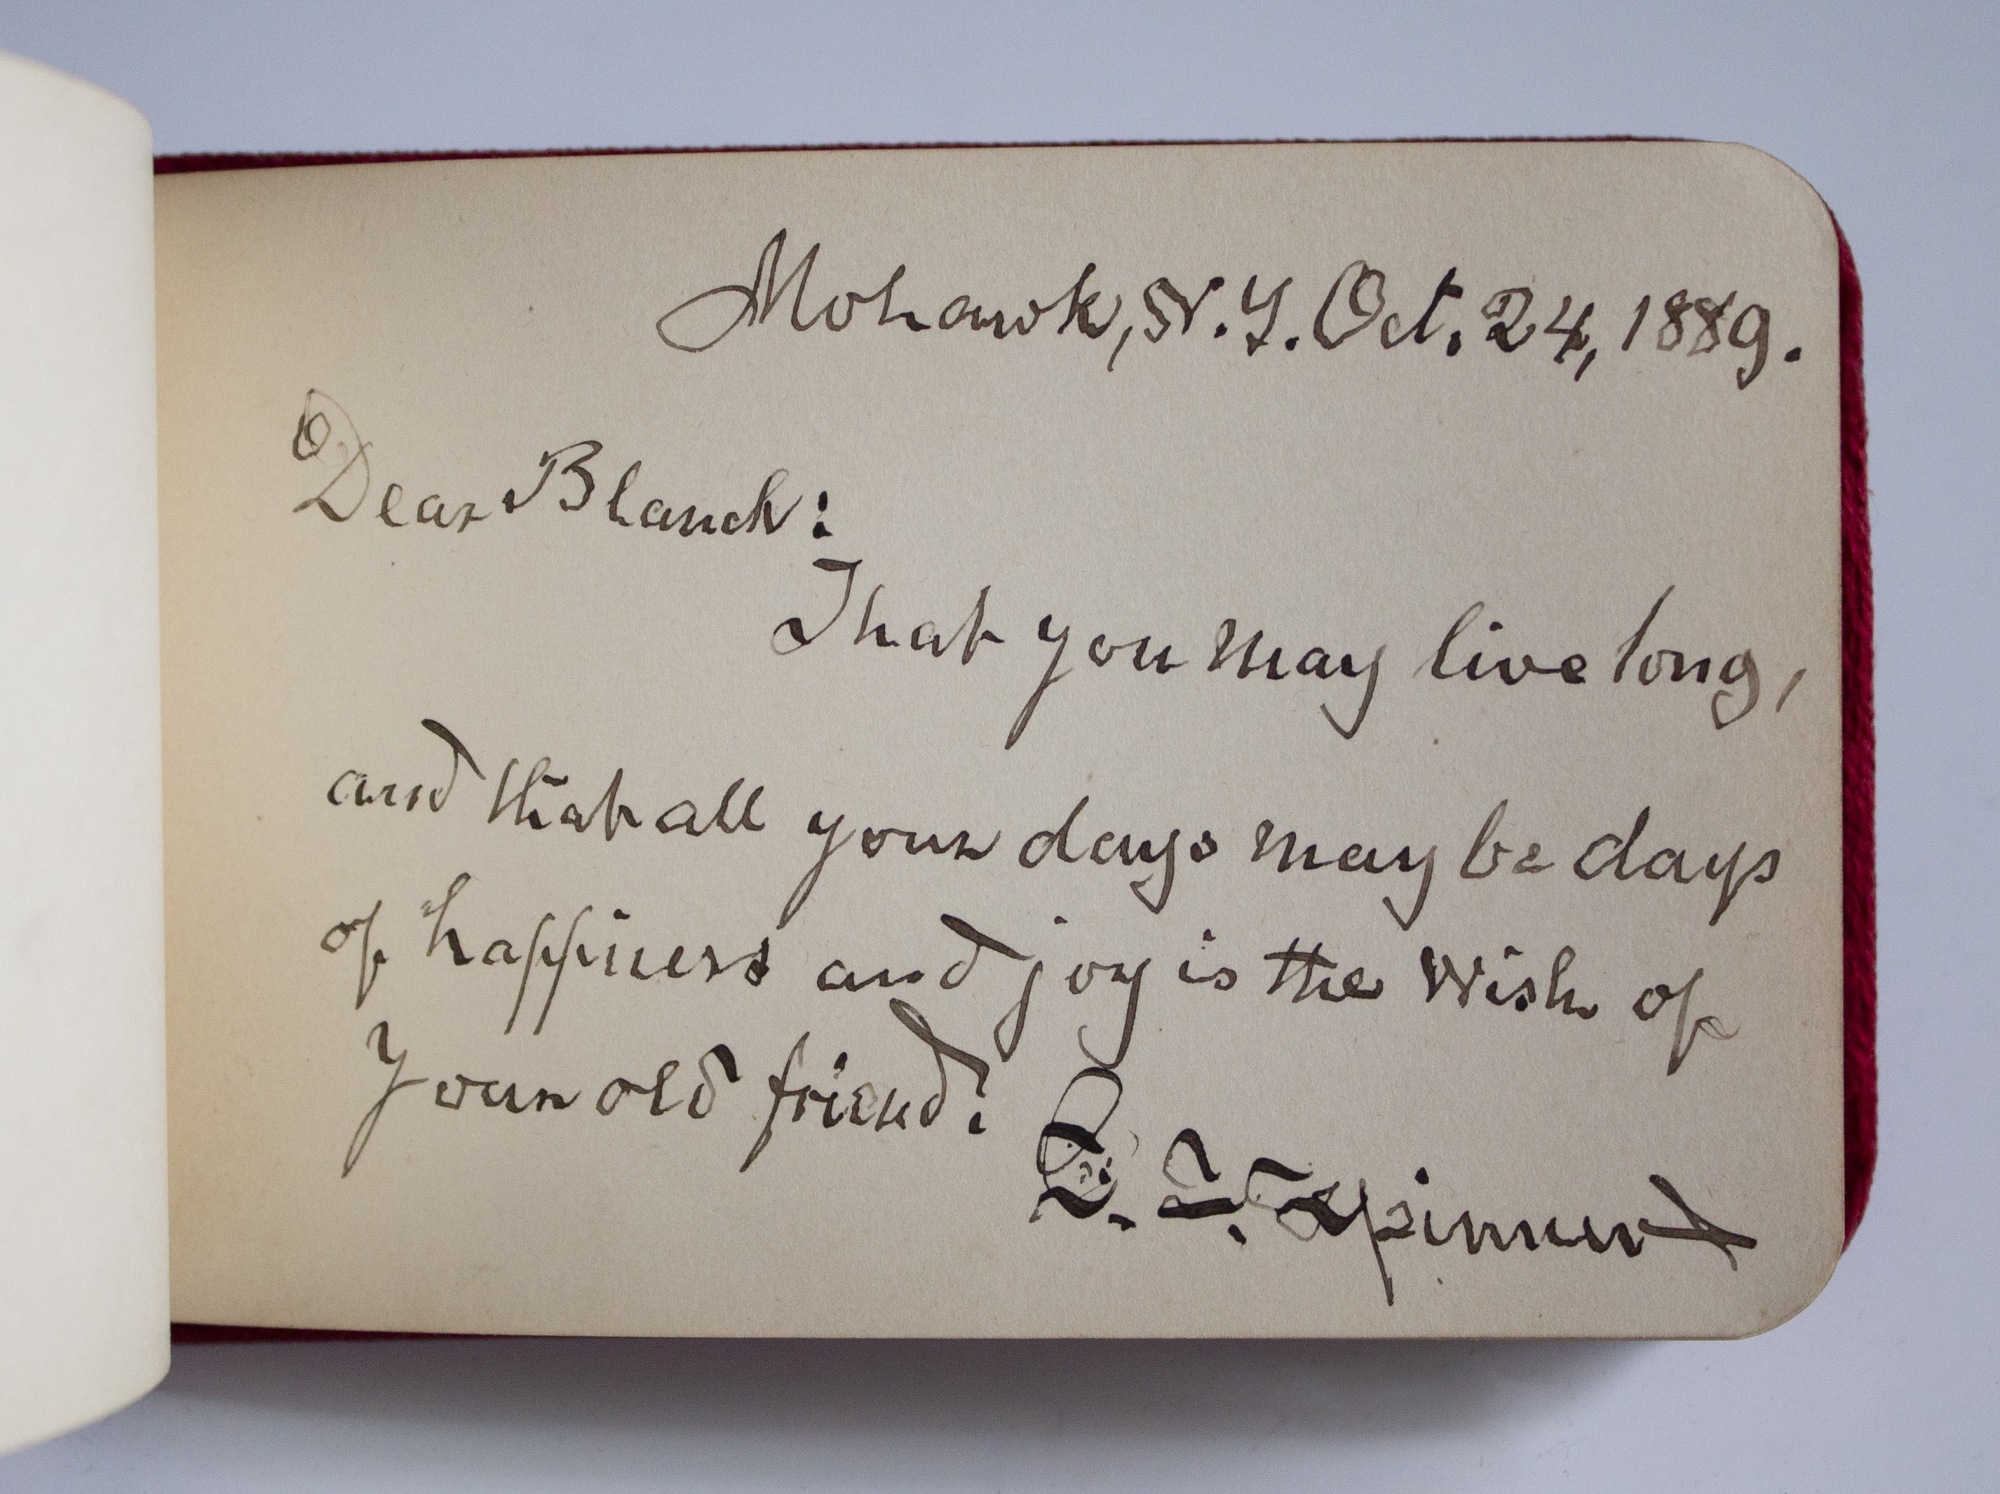 Mohawk, N.Y. Oct. 24, 1889.
Dear Blanch:
That you may live long,
and that all your days may be days
of happiness and joy is the wish of
Your old friend:
F. E. Spinner